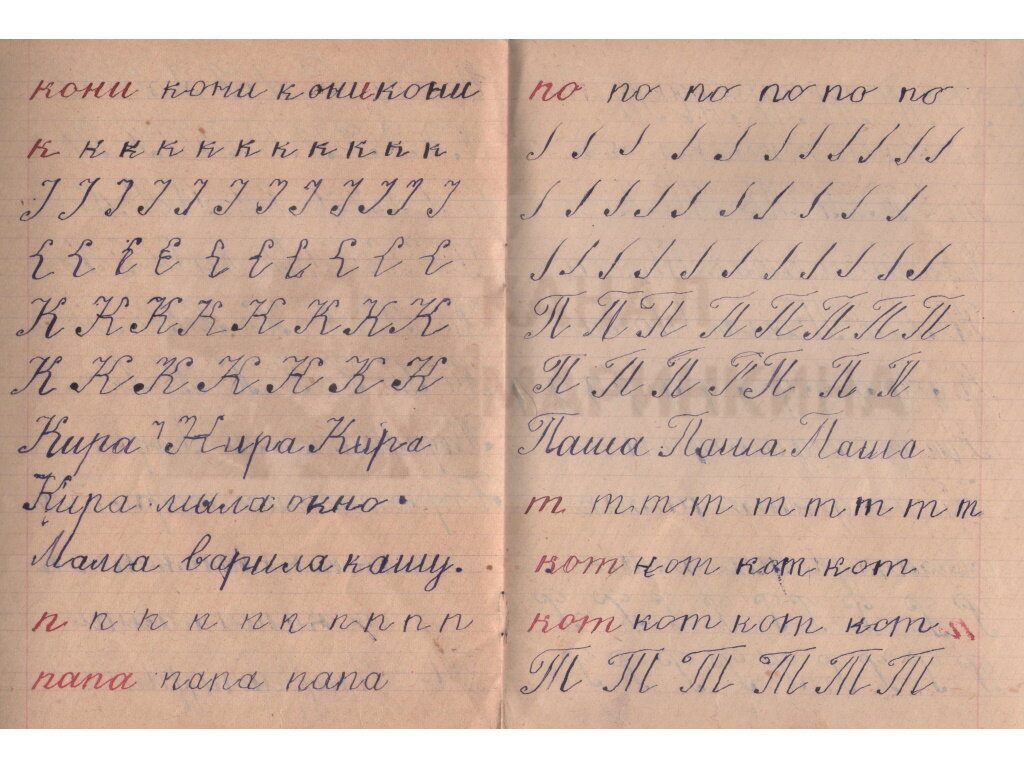 кони кони кони кони
к к к к к к к к к к к
К К К К К К К К
К К К К К К К
Кира Кира Кира
Кира мыла окно.
Мама варила кашу.
п п п п п п п п п п
папа папа папа
по по по по по по
П П П П П П П П
П П П П П П П
Паша Паша Паша
т т т т т т т т т
кот кот кот кот
кот кот кот кот п
Т Т Т Т Т Т